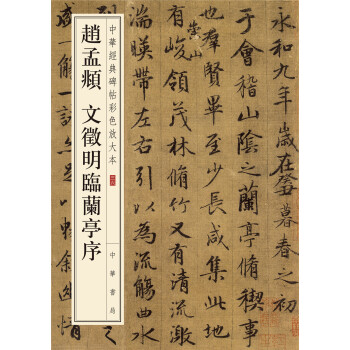 永和九年歲在癸丑暮春之初
于會稽山陰之蘭亭脩禊事
也羣賢畢至少長咸集此地
有崇山峻領茂林脩竹又有清流激
湍暎帶左右引以為流觴曲水
中華經典碑帖彩色放大本
趙孟頫 文徵明臨蘭亭序
中華書局